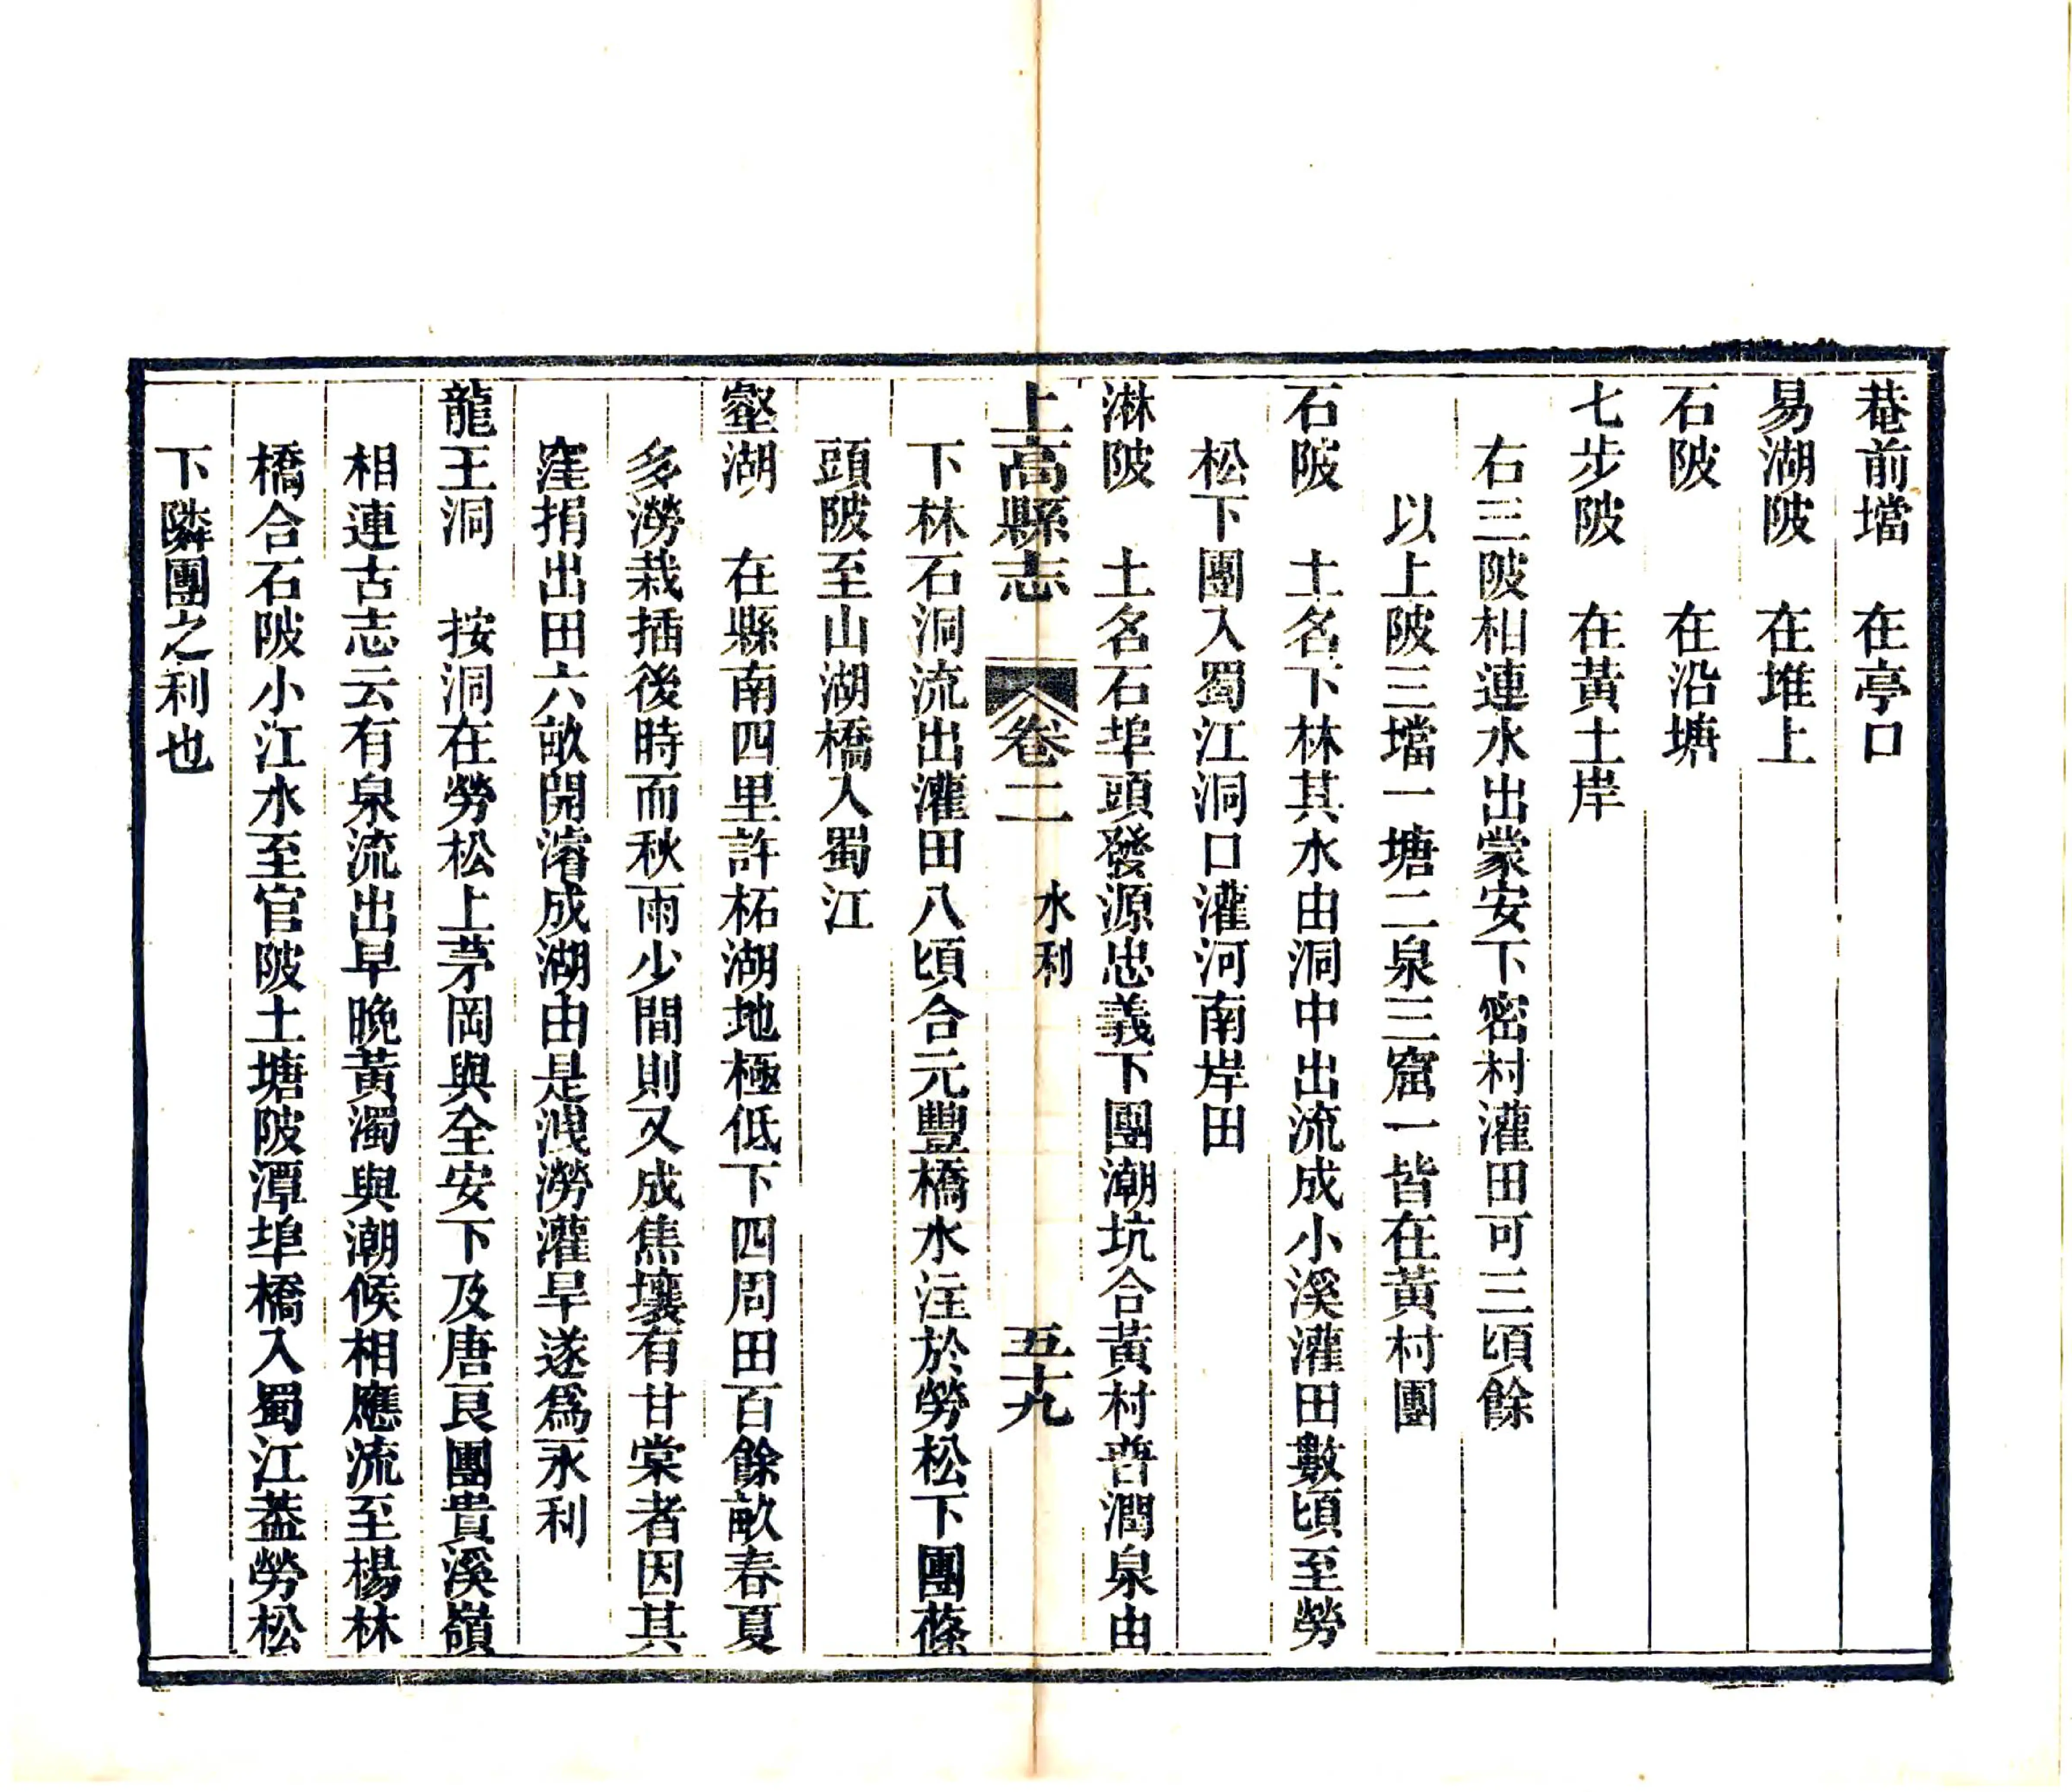 巷前壋　在亭口
易湖陂　在堆上
石陂　　在沿塘
七步陂　在黃土岸
右三陂相連水出蒙安下密村灌田可三頃餘
以上陂三壋一塘二泉三窟一皆在黃村團
石陂　土名下林其水由洞中出流成小溪灌田數頃至勞
松下團入蜀江洞口灌河南岸田
淋陂　土名石埠頭發源忠義下團潮坑合黃村普潤泉由
上高縣志　卷二　水利　五十九
下林石洞流出灌田八頃合元豐橋水注於勞松下團蓧
頭陂至山湖橋入蜀江
壑湖　在縣南四里許柘湖地極低下四周田百餘畝春夏
多澇栽插後時而秋雨少間則又成焦壤有甘棠者因其
窪捐出田六畝開濬成湖由是洩澇灌旱遂爲永利
龍王洞　按洞在勞松上茅岡與全安下及唐良團貴溪嶺
相連古志云有泉流出早晚黃濁與潮候相應流至楊林
橋合石陂小江水至官陂土塘陂潭埠橋入蜀江葢勞松
下隣團之利也